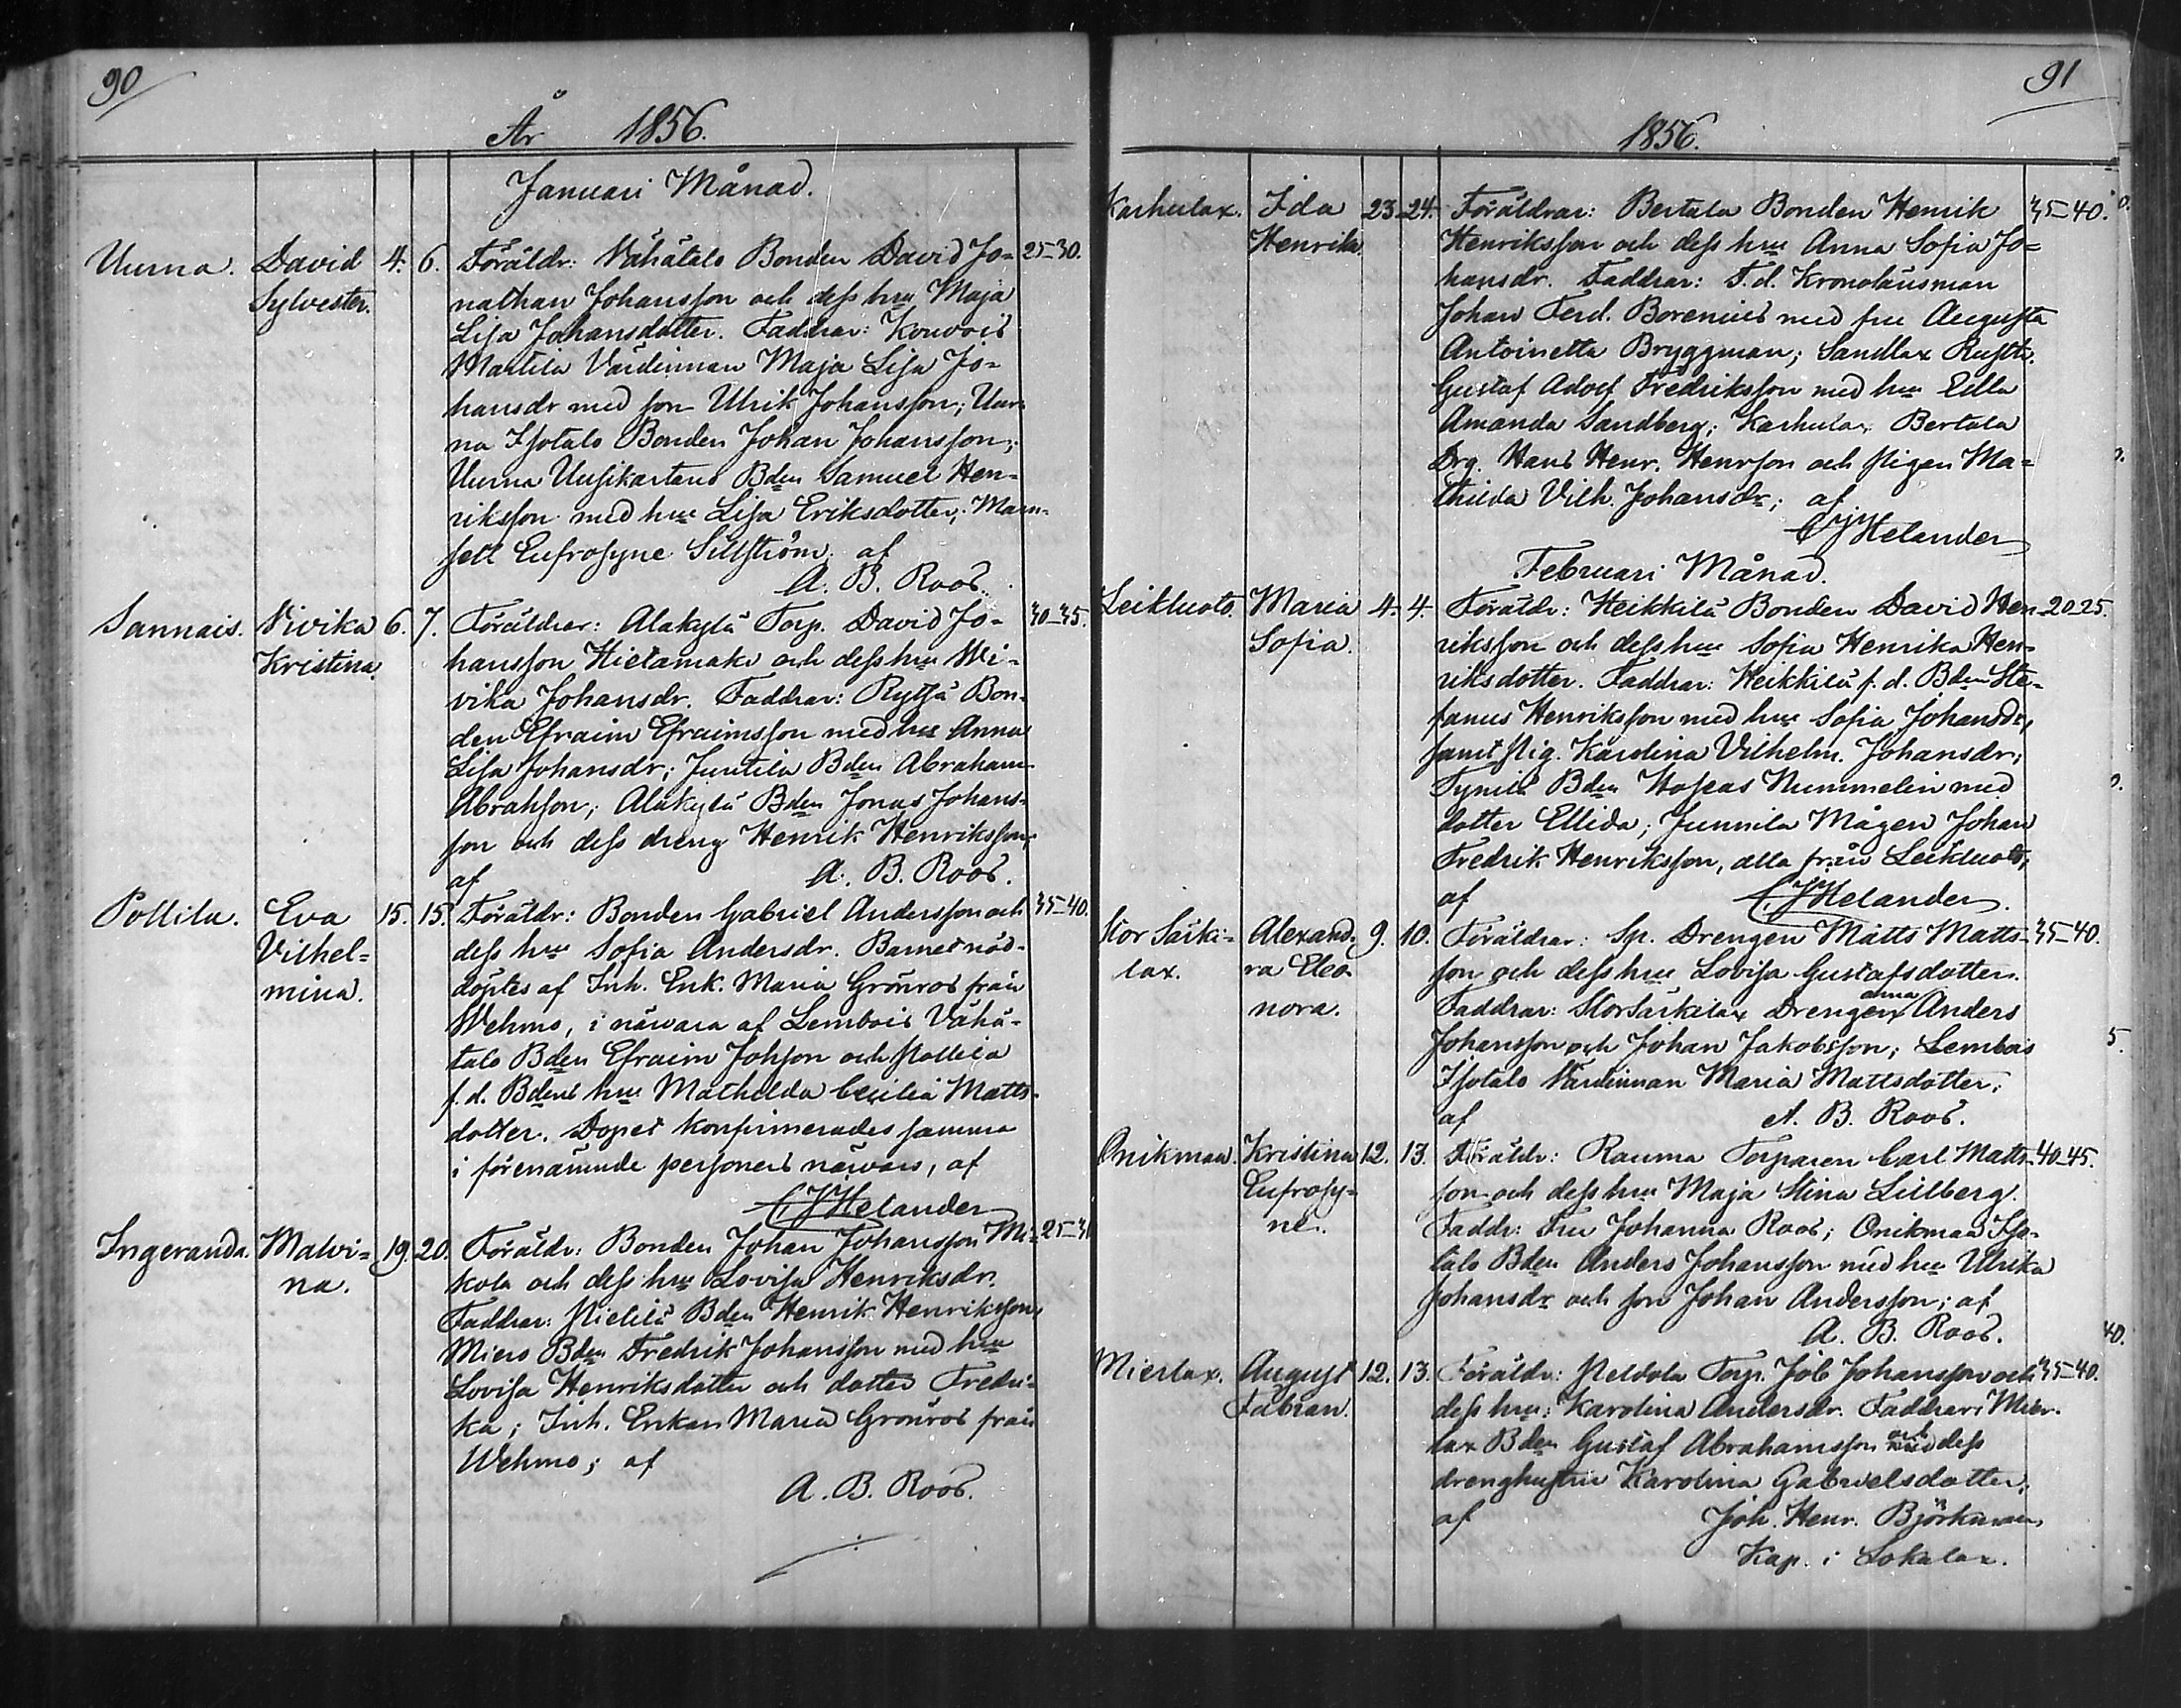 90
År 1856.
Januari Månad.
Uurna. David 4. 6. Föräldr: Vähätalo Bonden David Jo= 25-30.
Sylvester. nathan Johansson och dess hu Maja
Lisa Johansdotter. Faddrar: Kouvois
Martila Värdinnan Maja Lisa Jo=
hansdr med son Ulrik Johansson; Uur=
na Isotalo Bonden Johan Johansson;
Uurna Uusikartano Bden Samuel Hen=
riksson med hu Lisa Eriksdotter; Mam=
sell Eufrosyne Sillström. af
A. B. Roos.
Sannais. Vivika 6. 7. Föräldrar: Alakylä Torp. David Jo= 30-35.
Kristina. hansson Hietamaki och dess hu Wi=
vika Johansdr. Faddrar: Rytsä Bon=
den Efraim Efraimsson med hu Anna
Lisa Johansdr; Junttila Bden Abraham
Abrahsson; Alakylä Bden Jonas Johans=
son och dess dreng Henrik Henriksson,
af A. B. Roos.
Pollila. Eva 15. 15. Föräldr: Bonden Gabriel Andersson och 35-40.
Vilhel= dess hu Sofia Andersdr. Barnet nöd=
mina. döptes af Inh. Enk. Maria Grönros från
Wehmo, i närvara af Lembois Vähä=
talo Bden Efraim Johsson och Pollila
f.d. Bdens hu Mathilda Cecilia Matts=
dotter. Dopet konfirmerades samma
i förenämnde personers närvaro, af
CJHelander
Ingeranda. Malvi= 19. 20. Föräldr: Bonden Johan Johansson Mi= 25-30
na. kola och dess hu Lovisa Henriksdr.
Faddrar: Pietilä Bden Henrik Henriksson,
Miero Bden Fredrik Johansson med hu
Lovisa Henriksdotter och dotter Fredri=
ka; Inh. Enkan Maria Grönros från
Wehmo; af
A. B. Roos.
91
1856.
Karhulax. Ida 23. 24. Föräldrar: Bertala Bonden Henrik 35-40.
Henrika. Henriksson och dess hu Anna Sofia Jo=
hansdr. Faddrar: F.d. Kronolänsman
Johan Ferd. Borenius med fru Augusta
Antoinetta Bryggman; Sandlax Rustth.
Gustaf Adolf Fredriksson med hu Edla
Amanda Sandberg; Karhulax Bertala
Drg. Hans Henr. Henrsson och pigan Ma=
thilda Vilh. Johansdr; af
CJHelander
Februari Månad.
Leikluoto. Maria 4. 4. Föräldr: Heikkilä Bonden David Hen= 20-25.
Sofia. riksson och dess hu Sofia Henrika Hen=
riksdotter. Faddrar: Heikkilä f.d. Bden Ste=
fanus Henriksson med hu Sofia Johansdr,
samt pig. Karolina Vilhelm. Johansdr;
Tynilä Bden Hoseas Nummelin med
dotter Ellida; Junnila Mågen Johan
Fredrik Henriksson, alla från Leikluoto,
af CJHelander.
Stor Särki= Alexand= 9. 10. Föräldrar: Sp. Drengen Matts Matts= 35-40.
lax. ra Eleo son och dess hu Lovisa Gustafsdotter.
nora. Faddrar: StorSärkilax Drengarna Anders
Johansson och Johan Jakobsson; Lembois
Isotalo Värdinnan Maria Mattsdotter;
af A. B. Roos.
Onikmaa. Kristina 12. 13. Föräldr: Rauma Torparen Carl Matts= 40-45.
Eufrosy= son och dess hu Maja Stina Lillberg.
ne. Faddr: Fru Johanna Roos; Onikmaa Iso=
talo Bden Anders Johansson med hu Ulrika
Johansdr och son Johan Andersson; af
A. B. Roos.
Mierlax. August 12. 13. Föräldr: Peldola Torp. Job Johansson och 35-40.
Fabian. dess hu: Karolina Andersdr. Faddrar: Mier=
lax Bden Gustaf Abrahamsson och dess
drenghustru Karolina Gabrielsdotter;
af Joh. Henr. Björkman,
Kap. i Lokalax.